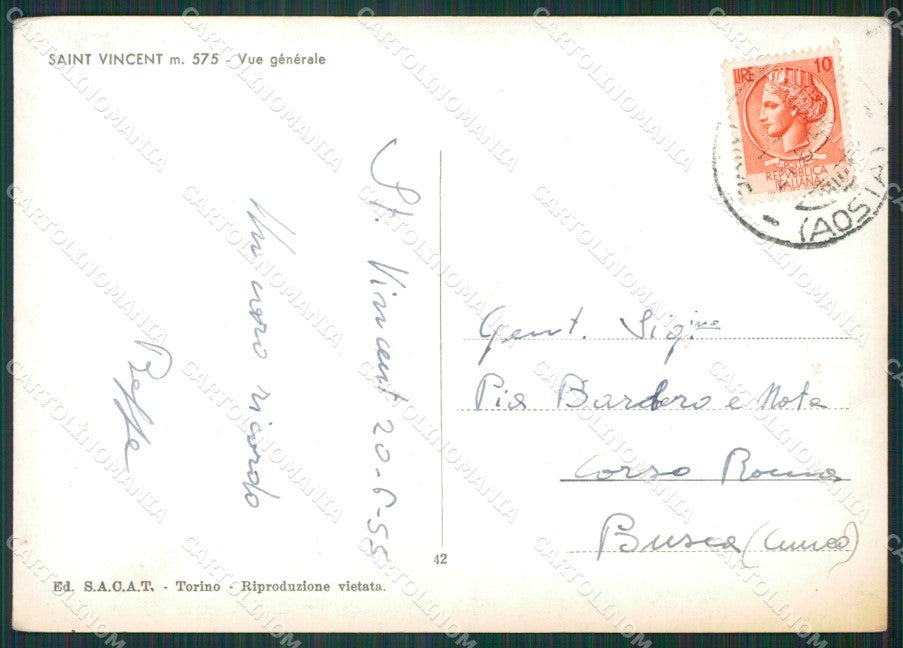 SAINT VINCENT m. 575 - Vue générale
LIRE 10
REPVBBLICA
ITALIANA
(AOSTA)
St. Vincent 20-6-55
Un caro ricordo
Beppe
Gent. Sig.ine
Pia Bardero e Nota
Corso Roma
Busca (Cuneo)
42
Ed. S.A.C.A.T. - Torino - Riproduzione vietata.
CARTOLINOMANIA